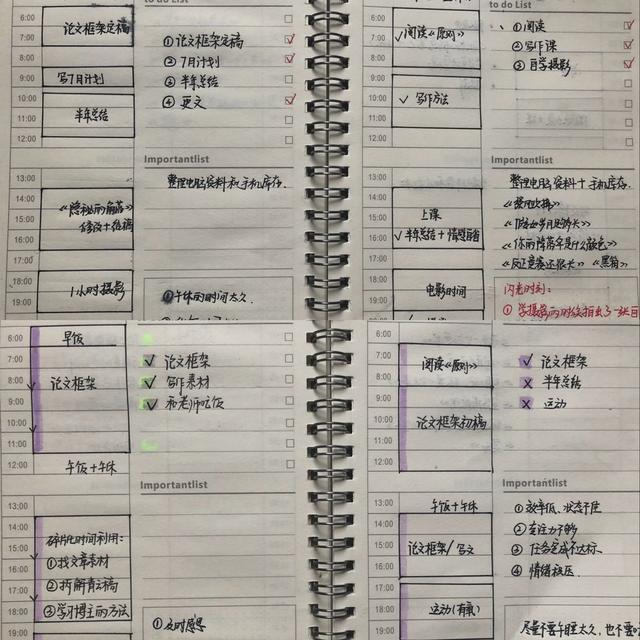 to do List
6:00
7:00
8:00
9:00
10:00
11:00
12:00
论文框架定稿
写7月计划
半年总结
① 论文框架定稿
② 7月计划
③ 半年总结
④ 更文
Importantlist
整理电脑资料和手机库存.
13:00
14:00
15:00
16:00
17:00
18:00
19:00
《隐秘的角落》
修改+投稿
1小时摄影
①午休的时间太久.
to do List
6:00
7:00
8:00
9:00
10:00
11:00
12:00
✓阅读《原则》
✓ 写作方法
① 阅读
② 写作课
③ 自学摄影
Importantlist
整理电脑资料+手机库存.
《你的降落伞是什么颜色》
《黑箱》
13:00
14:00
15:00
16:00
17:00
18:00
19:00
上课
✓半年总结+
电影时间
闪光时刻:
6:00
7:00
8:00
9:00
10:00
11:00
12:00
早饭
论文框架
午饭+午休
✓ 论文框架
✓ 写作素材
✓ 和老师吃饭
Importantlist
13:00
14:00
15:00
16:00
17:00
18:00
19:00
碎片化时间利用:
①找文章素材
②拆解青云稿
③学习博主的方法
①及时感恩
6:00
7:00
8:00
9:00
10:00
11:00
12:00
阅读《原则》
论文框架初稿
午饭+午休
✓ 论文框架
x 半年总结
x 运动
Importantlist
① 效率低、状态不佳
② 专注力不够
③ 任务完成不达标.
④ 情绪挤压.
13:00
14:00
15:00
16:00
17:00
18:00
19:00
论文框架/写文
运动(有氧)
尽量不要午睡太久,也不要